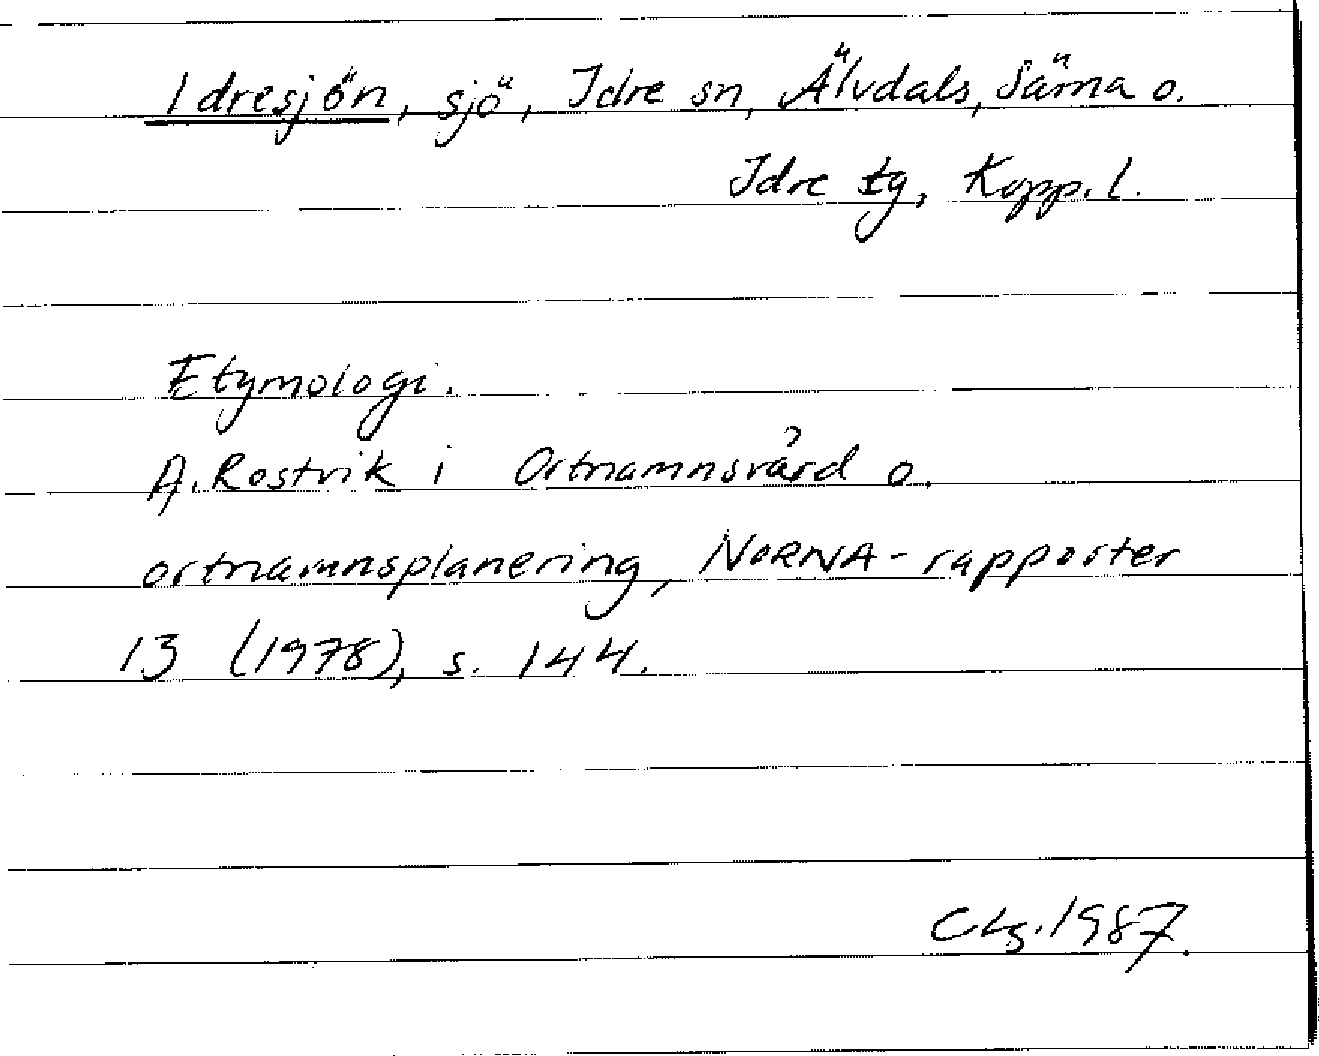 Idresjön, sjö, Idre sn, Älvdals, Särna o.
Idre tg, Kopp. l.
Etymologi.
A. Rostvik i Ortnamnsvård o.
ortnamnsplanering, NORNA-rapporter
13 (1978), s. 144.
1987.